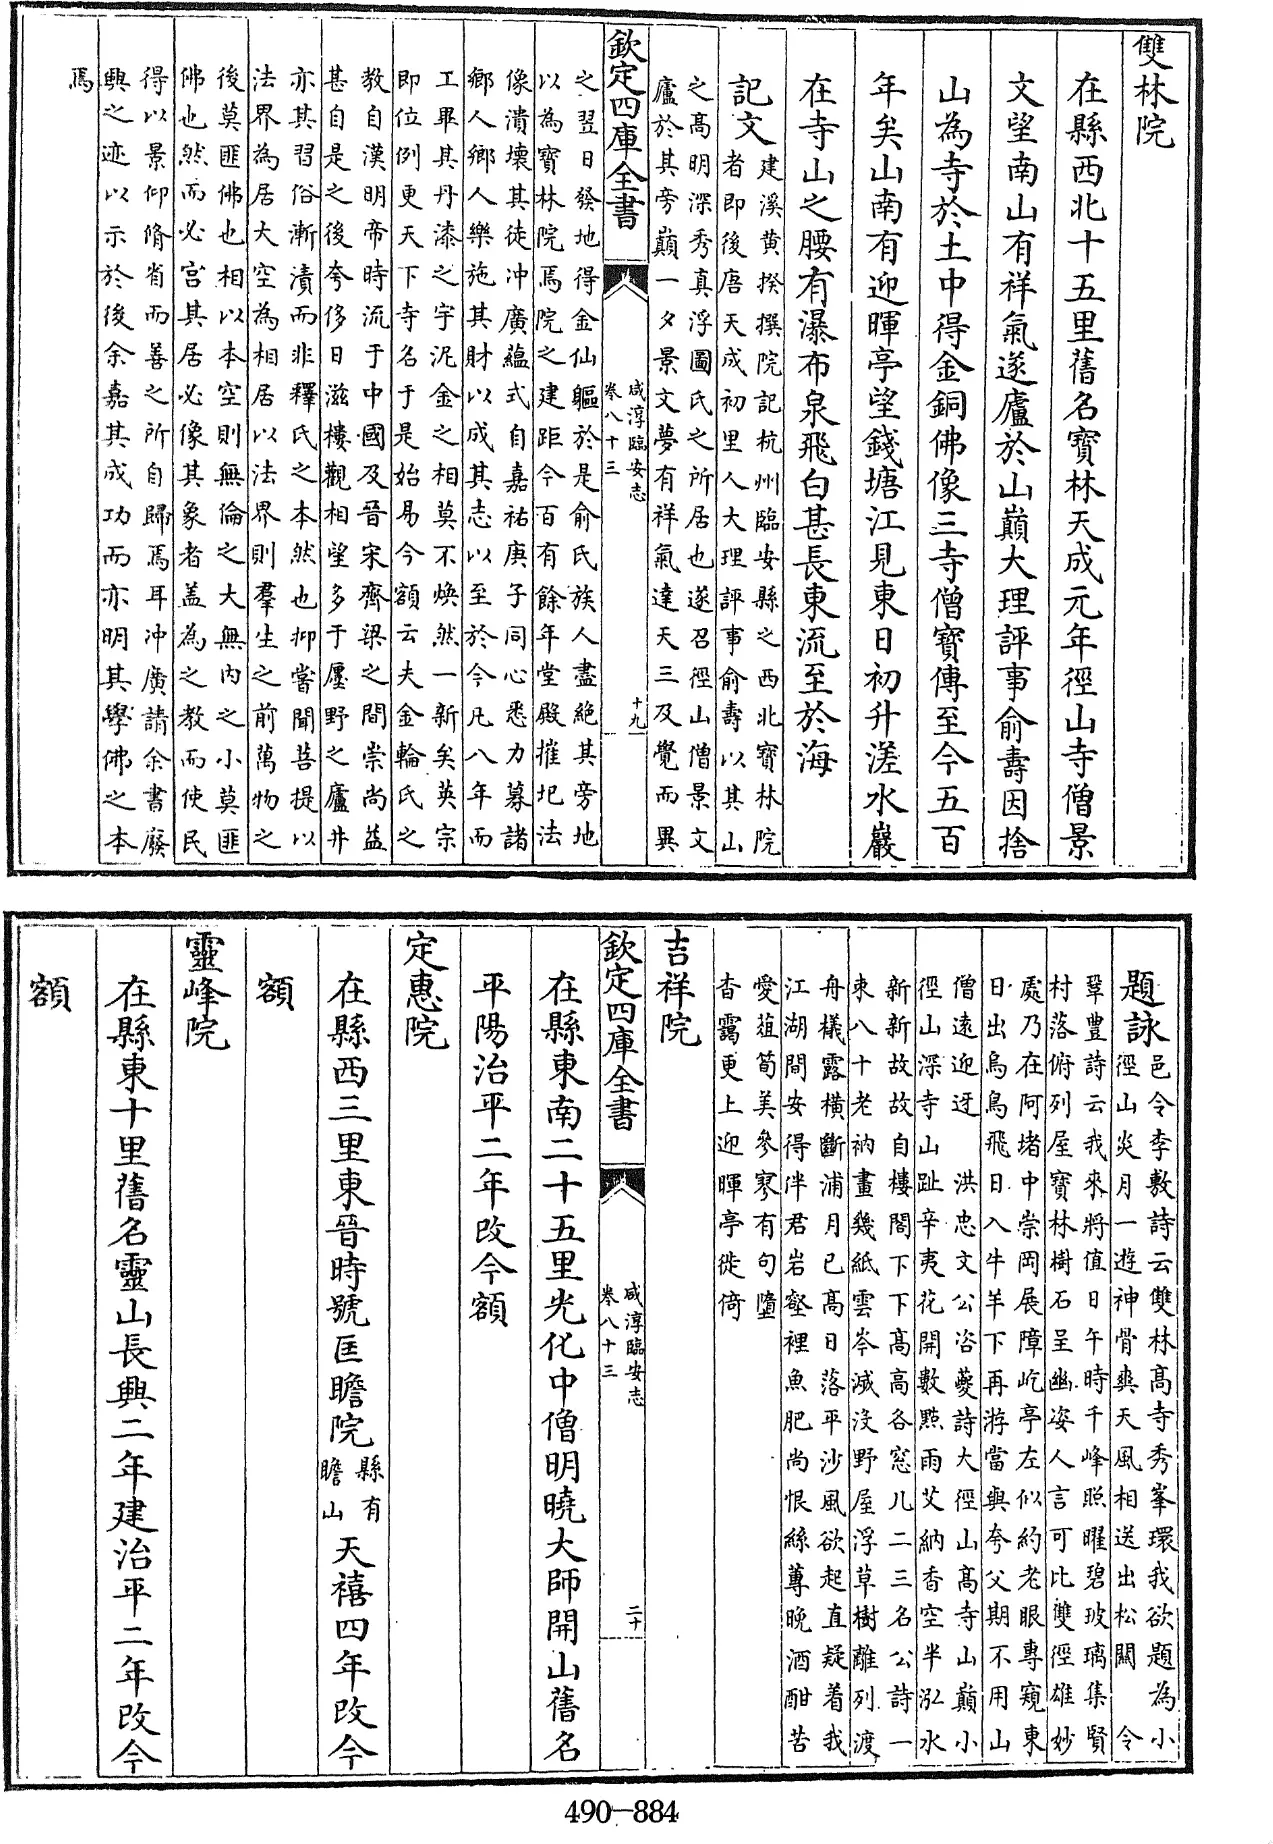 雙林院
在縣西北十五里舊名寶林天成元年徑山寺僧景
文望南山有祥氣遂廬於山巔大理評事俞壽因捨
山為寺於土中得金銅佛像三寺僧寶傳至今五百
年矣山南有迎暉亭望錢塘江見東日初升溠水巖
在寺山之腰有瀑布泉飛白甚長東流至於海
記文
建溪黄揆撰院記杭州臨安縣之西北寶林院
者即後唐天成初里人大理評事俞壽以其山
之髙明深秀真浮圖氏之所居也遂召徑山僧景文
廬於其旁巔一夕景文夢有祥氣達天三及覺而異
欽定四庫全書
咸淳臨安志
卷八十三
十九
之翌日發地得金仙軀於是俞氏族人盡絶其旁地
以為寶林院焉院之建距今百有餘年堂殿摧圮法
像潰壞其徒冲廣藴式自嘉祐庚子同心悉力募諸
鄉人鄉人樂施其財以成其志以至於今凡八年而
工畢其丹漆之宇泥金之相莫不煥然一新矣英宗
即位例更天下寺名于是始易今額云夫金輪氏之
教自漢明帝時流于中國及晉宋齊梁之間崇尚益
甚自是之後夸侈日滋樓觀相望多于㕓野之廬井
亦其習俗漸漬而非釋氏之本然也抑嘗聞菩提以
法界為居大空為相居以法界則羣生之前萬物之
後莫匪佛也相以本空則無倫之大無内之小莫匪
佛也然而必宫其居必像其象者葢為之教而使民
得以景仰脩省而善之所自歸焉耳冲廣請余書廢
興之迹以示於後余嘉其成功而亦明其學佛之本
焉
題詠
邑令李敷詩云雙林髙寺秀峯環我欲題為小
徑山炎月一遊神骨爽天風相送出松闗 令
鞏豐詩云我來將值日午時千峰照曜碧玻璃集賢
村落俯列屋寶林樹石呈幽姿人言可比雙徑雄妙
處乃在阿堵中崇岡展障屹亭左似約老眼專窺東
日出烏烏飛日入牛羊下再游當與夸父期不用山
僧遠迎迓 洪忠文公咨夔詩大徑山髙寺山巔小
徑山深寺山趾辛夷花開數㸃雨艾納香空半泓水
新新故故自樓閣下下髙髙各窓几二三名公詩一
束八十老衲畫幾紙雲岑滅沒野屋浮草樹離列渡
舟檥露横斷浦月已髙日落平沙風欲起直疑着我
江湖間安得伴君岩壑裡魚肥尚恨絲蓴晚酒酣苦
愛葅筍美參寥有句墮
杳靄更上迎暉亭徙倚
吉祥院
欽定四庫全書
咸淳臨安志
卷八十三
二十
在縣東南二十五里光化中僧明曉大師開山舊名
平陽治平二年改今額
定惠院
在縣西三里東晉時號匡瞻院縣有瞻山天禧四年改今
額
靈峰院
在縣東十里舊名靈山長興二年建治平二年改今
額
490-884